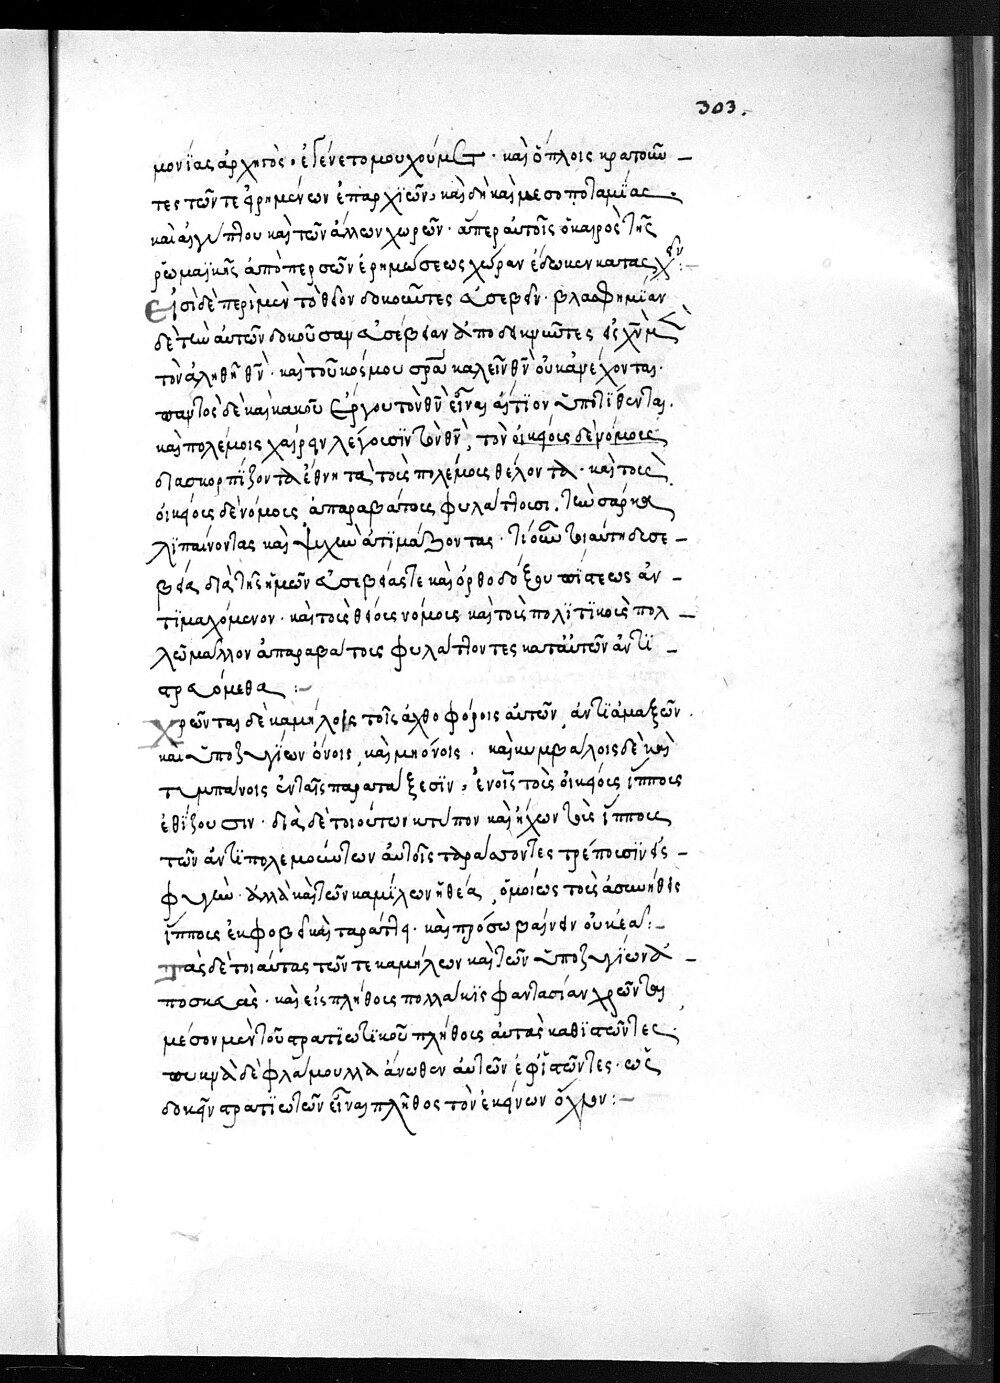 303.
μονίας ἀρχηγὸς ἐγένετο μουχούμετ· καὶ ὅπλοις κρατοῦν
τες τῶν τε εἰρημένων ἐπαρχιῶν, καὶ δὴ καὶ μεσοποταμίας
καὶ αἰγύπτου καὶ τῶν ἄλλων χωρῶν· ἅπερ αὐτοῖς ὁ καιρὸς τῆς
ῥωμαϊκῆς ἀπὸ περσῶν ἐρημώσεως χώραν ἔδωκεν κατασχεῖν:
Εἰσὶ δὲ περὶ μὲν τὸ θεῖον δοκοῦντες εὐσεβεῖν· βλασφημίαν
δὲ τὴν αὐτῶν δοκοῦσαν εὐσέβειαν ἀποδεικνῦντες
τὸν ἀληθῆ θν̄· καὶ τοῦ κόσμου σρ̄α καλεῖν θν̄ οὐκ ἀνέχονται·
παντὸς δὲ καὶ κακοῦ ἔργου τὸν θν̄ εἶναι αἴτιον ὑποτίθενται.
καὶ πολέμοις χαίρειν λέγουσιν τὸν θν̄, τὸν οἰκείοις δὲ νόμοις
διασκορπίζοντα ἔθνη τὰ τοὺς πολέμους θέλοντα· καὶ τοὺς
οἰκείοις δὲ νόμοις ἀπαραβάτοις φυλάττουσι. τὴν σάρκα
λιπαίνοντας καὶ ψυχὴν ἀτιμάζοντας· τῇ οὖν τοιαύτῃ δυσσε
βείᾳ διὰ τῆς ἡμῶν εὐσεβείας τε καὶ ὀρθοδόξου πίστεως ἀν
τιμαχόμενοι· καὶ τοὺς θείους νόμους καὶ τοὺς πολιτικοὺς πολ
λῷ μᾶλλον ἀπαραβάτους φυλάττοντες κατ' αὐτῶν ἀντι
στρατευόμεθα:
Χρῶνται δὲ καμήλοις τοῖς ἀχθοφόροις αὐτῶν, ἀντὶ ἁμαξῶν
καὶ ὑποζυγίων ὄνοις, καὶ ἡμιόνοις. καὶ κυμβάλοις δὲ καὶ
τυμπάνοις ἐν ταῖς παρατάξεσιν, ἐν οἷς τοὺς οἰκείους ἵππους
ἐθίζουσιν· διὰ δὲ τοιούτων κτύπον καὶ ἦχον τοὺς ἵππους
τῶν ἀντιπολεμούντων αὐτοῖς ταράσσοντες τρέπουσιν εἰς
φυγὴν· ἀλλὰ καὶ τῶν καμήλων ἡ θέα, ὁμοίως τοὺς ἀσυνήθεις
ἵππους ἐκφοβεῖ καὶ ταράττει· καὶ πρόσω βαίνειν οὐκ ἐᾷ:
Τὰς δὲ τοιαύτας τῶν τε καμήλων καὶ τῶν ὑποζυγίων ἀ
ποσκευὰς· καὶ εἰς πλήθους πολλάκις φαντασίαν χρῶνται,
μέσον μὲν τοῦ στρατιωτικοῦ πλήθους αὐτὰς καθιστῶντες·
πυκνὰ δὲ φλάμουλλα ἄνωθεν αὐτῶν ἐφιστῶντες· ὡς
δοκεῖν στρατιωτῶν εἶναι πλῆθος τὸν ἐκείνων ὄχλον: